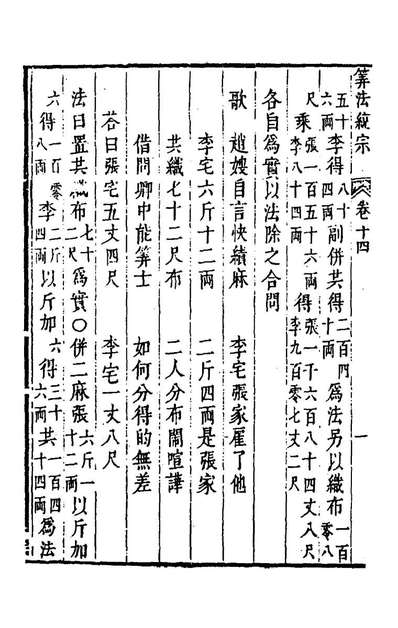 筭法統宗 卷十四 一
五十六兩李得八十四兩副併共得二百四十兩為法另以織布一百零八
尺乘張一百五十六兩李八十四兩得張一千六百八十四丈八尺李九百零七丈二尺
各自為實以法除之合問
歌 趙嫂自言快績麻 李宅張家雇了他
李宅六斤十二兩 二斤四兩是張家
共織七十二尺布 二人分布鬧喧譁
借問卿中能筭士 如何分得的無差
荅曰張宅五丈四尺 李宅一丈八尺
法曰置共織布七十二尺為實○併二麻張六斤一十二兩以斤加
六得一百零八兩李二斤四兩以斤加六得三十六兩共一百四十四兩為法